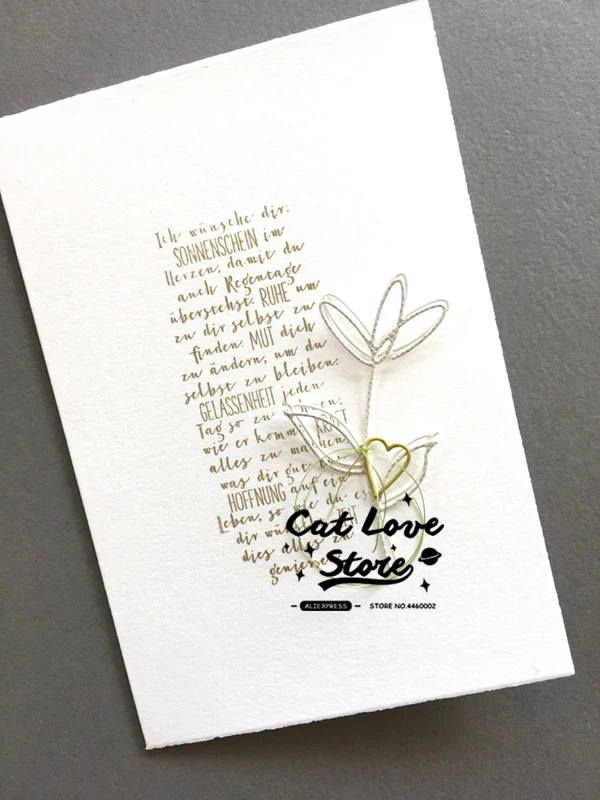 Ich wünsche dir:
SONNENSCHEIN im
Herzen, damit du
auch Regentage
überstehst. RUHE um
zu dir selbst zu
finden. MUT dich
zu ändern, um du
selbst zu bleiben.
GELASSENHEIT jeden
Tag so zu
wie er kommt. KRAFT
alles zu
was dir gut
HOFFNUNG auf ein
Leben, so wie du es
dir
dies alles zu
Cat Love
Store
ALIEXPRESS
STORE NO.4460002